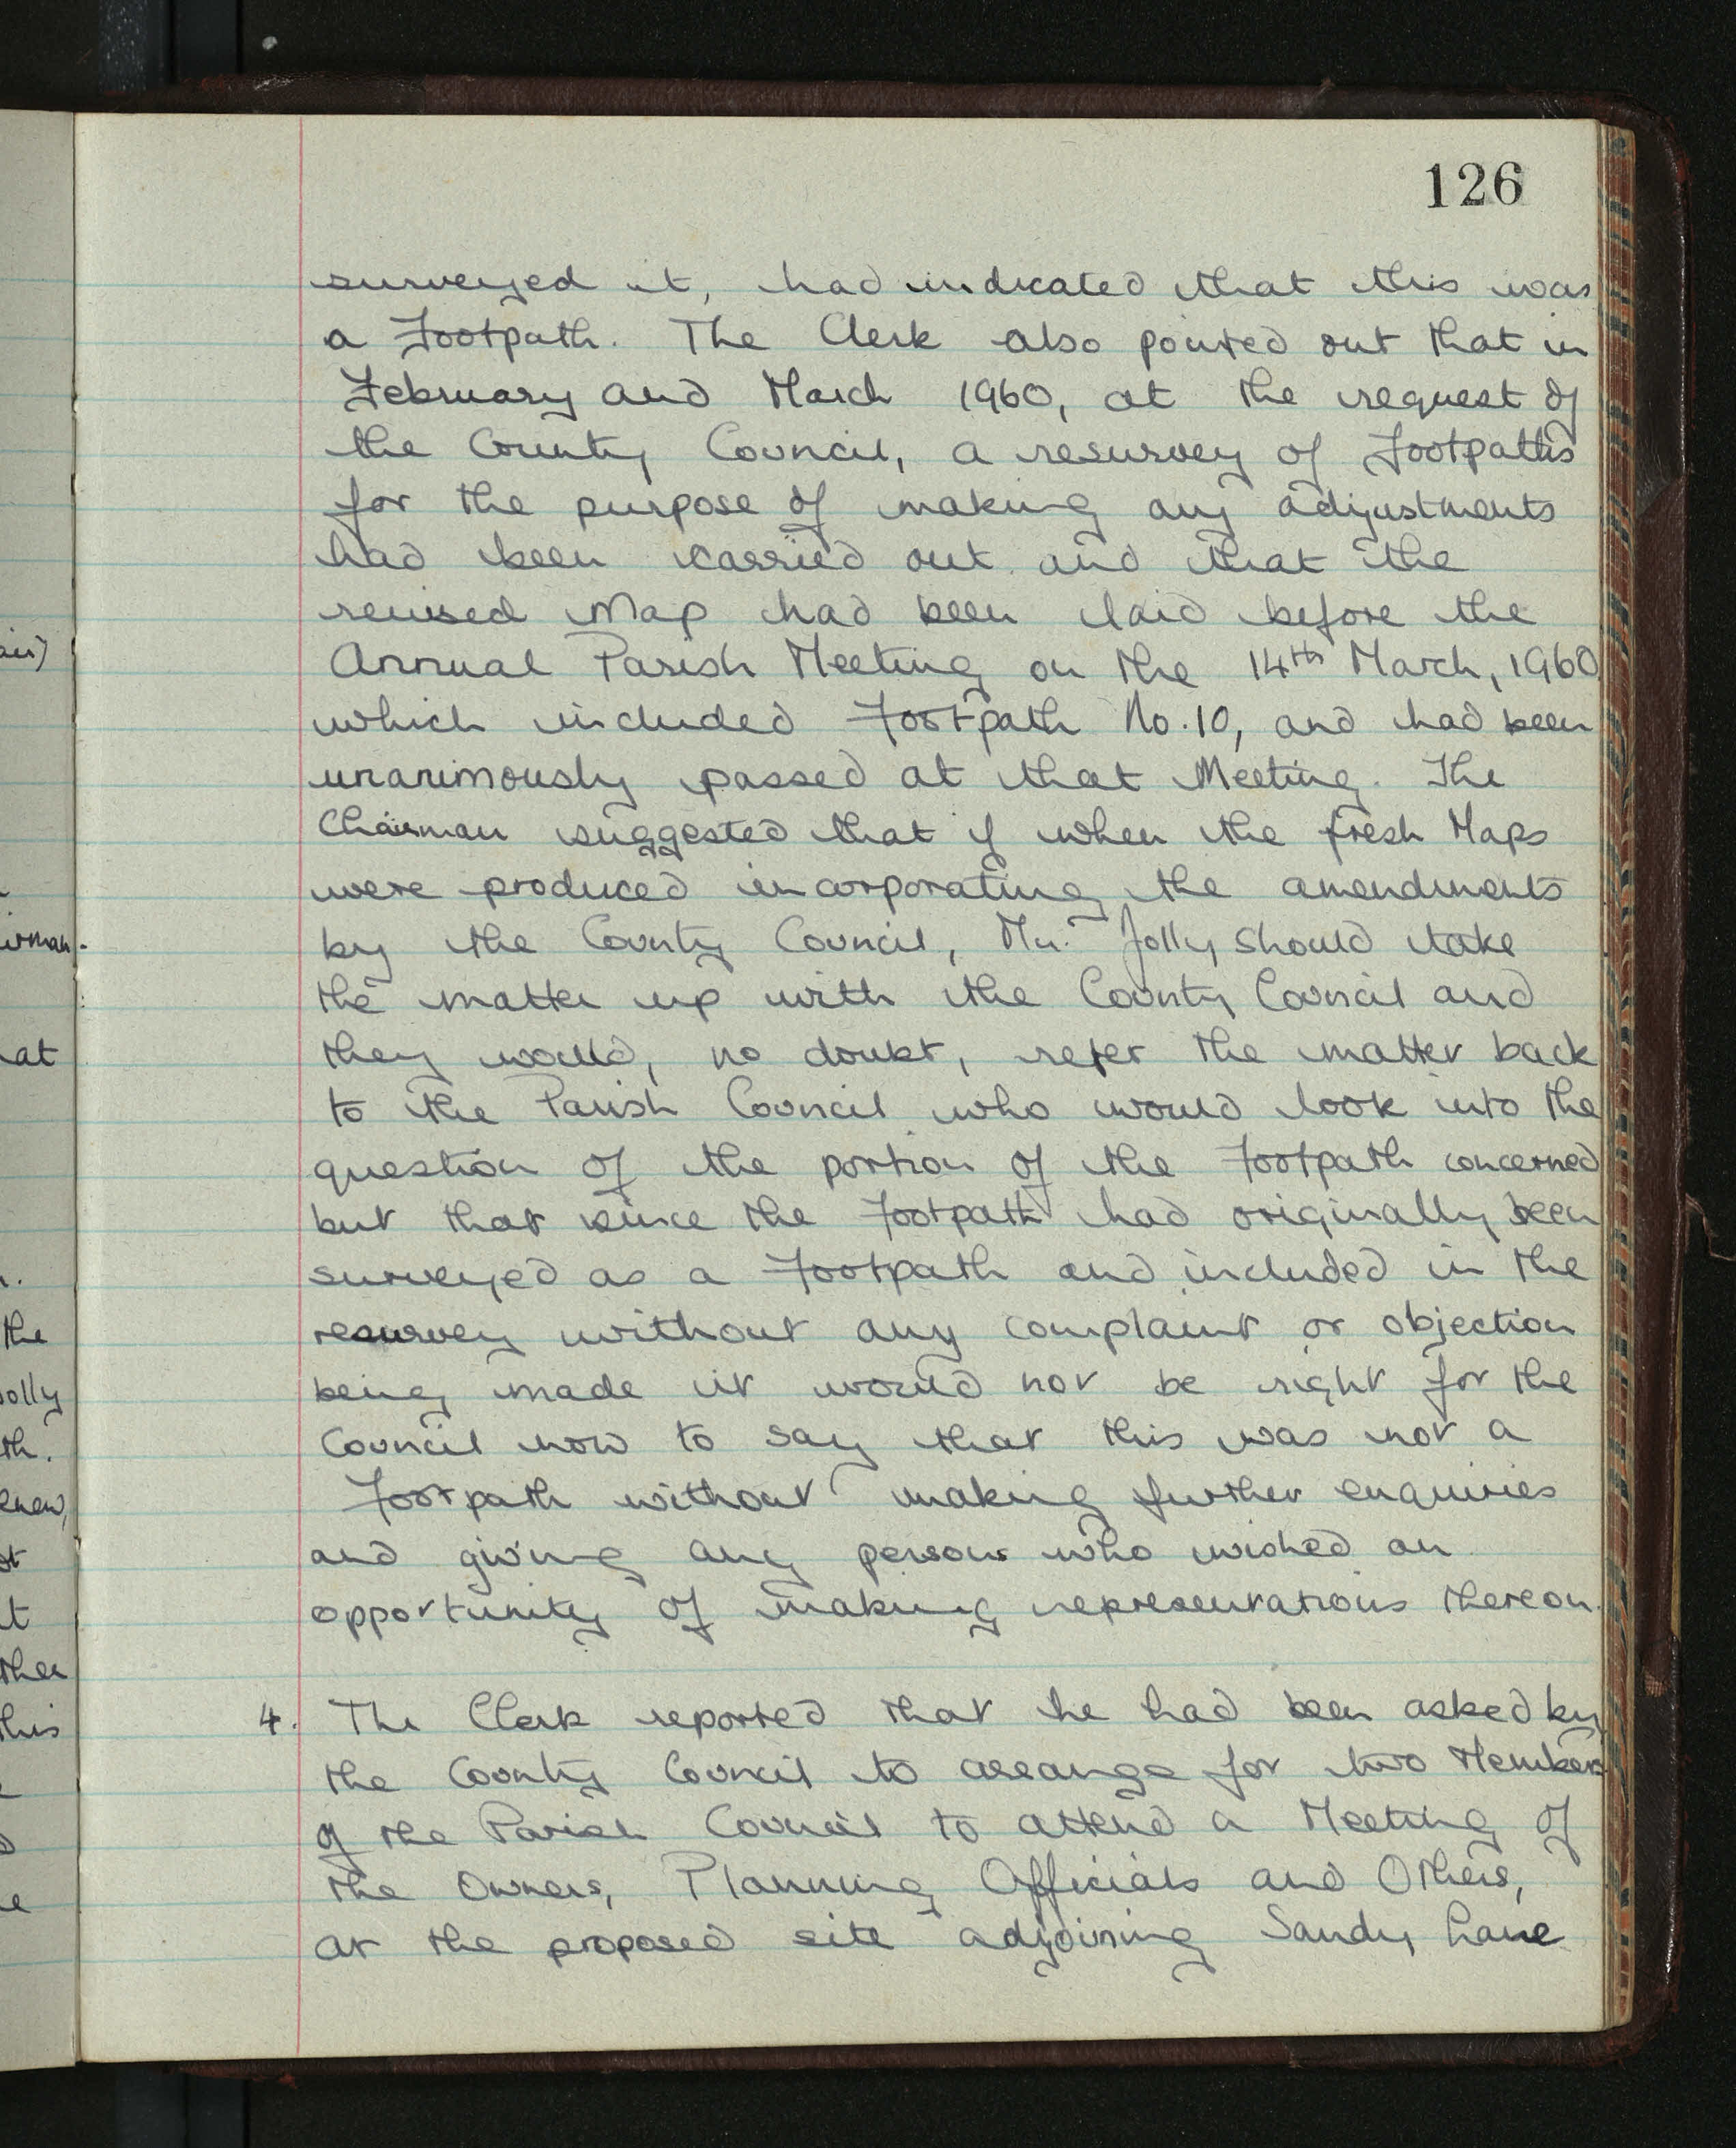 126
surveyed it, had indicated that this was
a Footpath. The Clerk also pointed out that in
February and March 1960, at the request of
the County Council, a resurvey of Footpaths
for the purpose of making any adjustments
had been carried out and that the
revised Map had been laid before the
Annual Parish Meeting on the 14th March, 1960
which included Footpath No. 10, and had been
unanimously passed at that Meeting. The
Chairman suggested that if when the fresh Maps
were produced incorporating the amendments
by the County Council, Mr. Jolly should take
the matter up with the County Council and
they would, no doubt, refer the matter back
to the Parish Council who would look into the
question of the portion of the Footpath concerned
but that since the Footpath had originally been
surveyed as a Footpath and included in the
resurvey without any complaint or objection
being made it would not be right for the
Council now to say that this was not a
Footpath without making further enquiries
and giving any persons who wished an
opportunity of making representations thereon.
4. The Clerk reported that he had been asked by
the County Council to arrange for two Members
of the Parish Council to attend a Meeting of
the Owners, Planning Officials and Others,
at the proposed site adjoining Sandy Lane